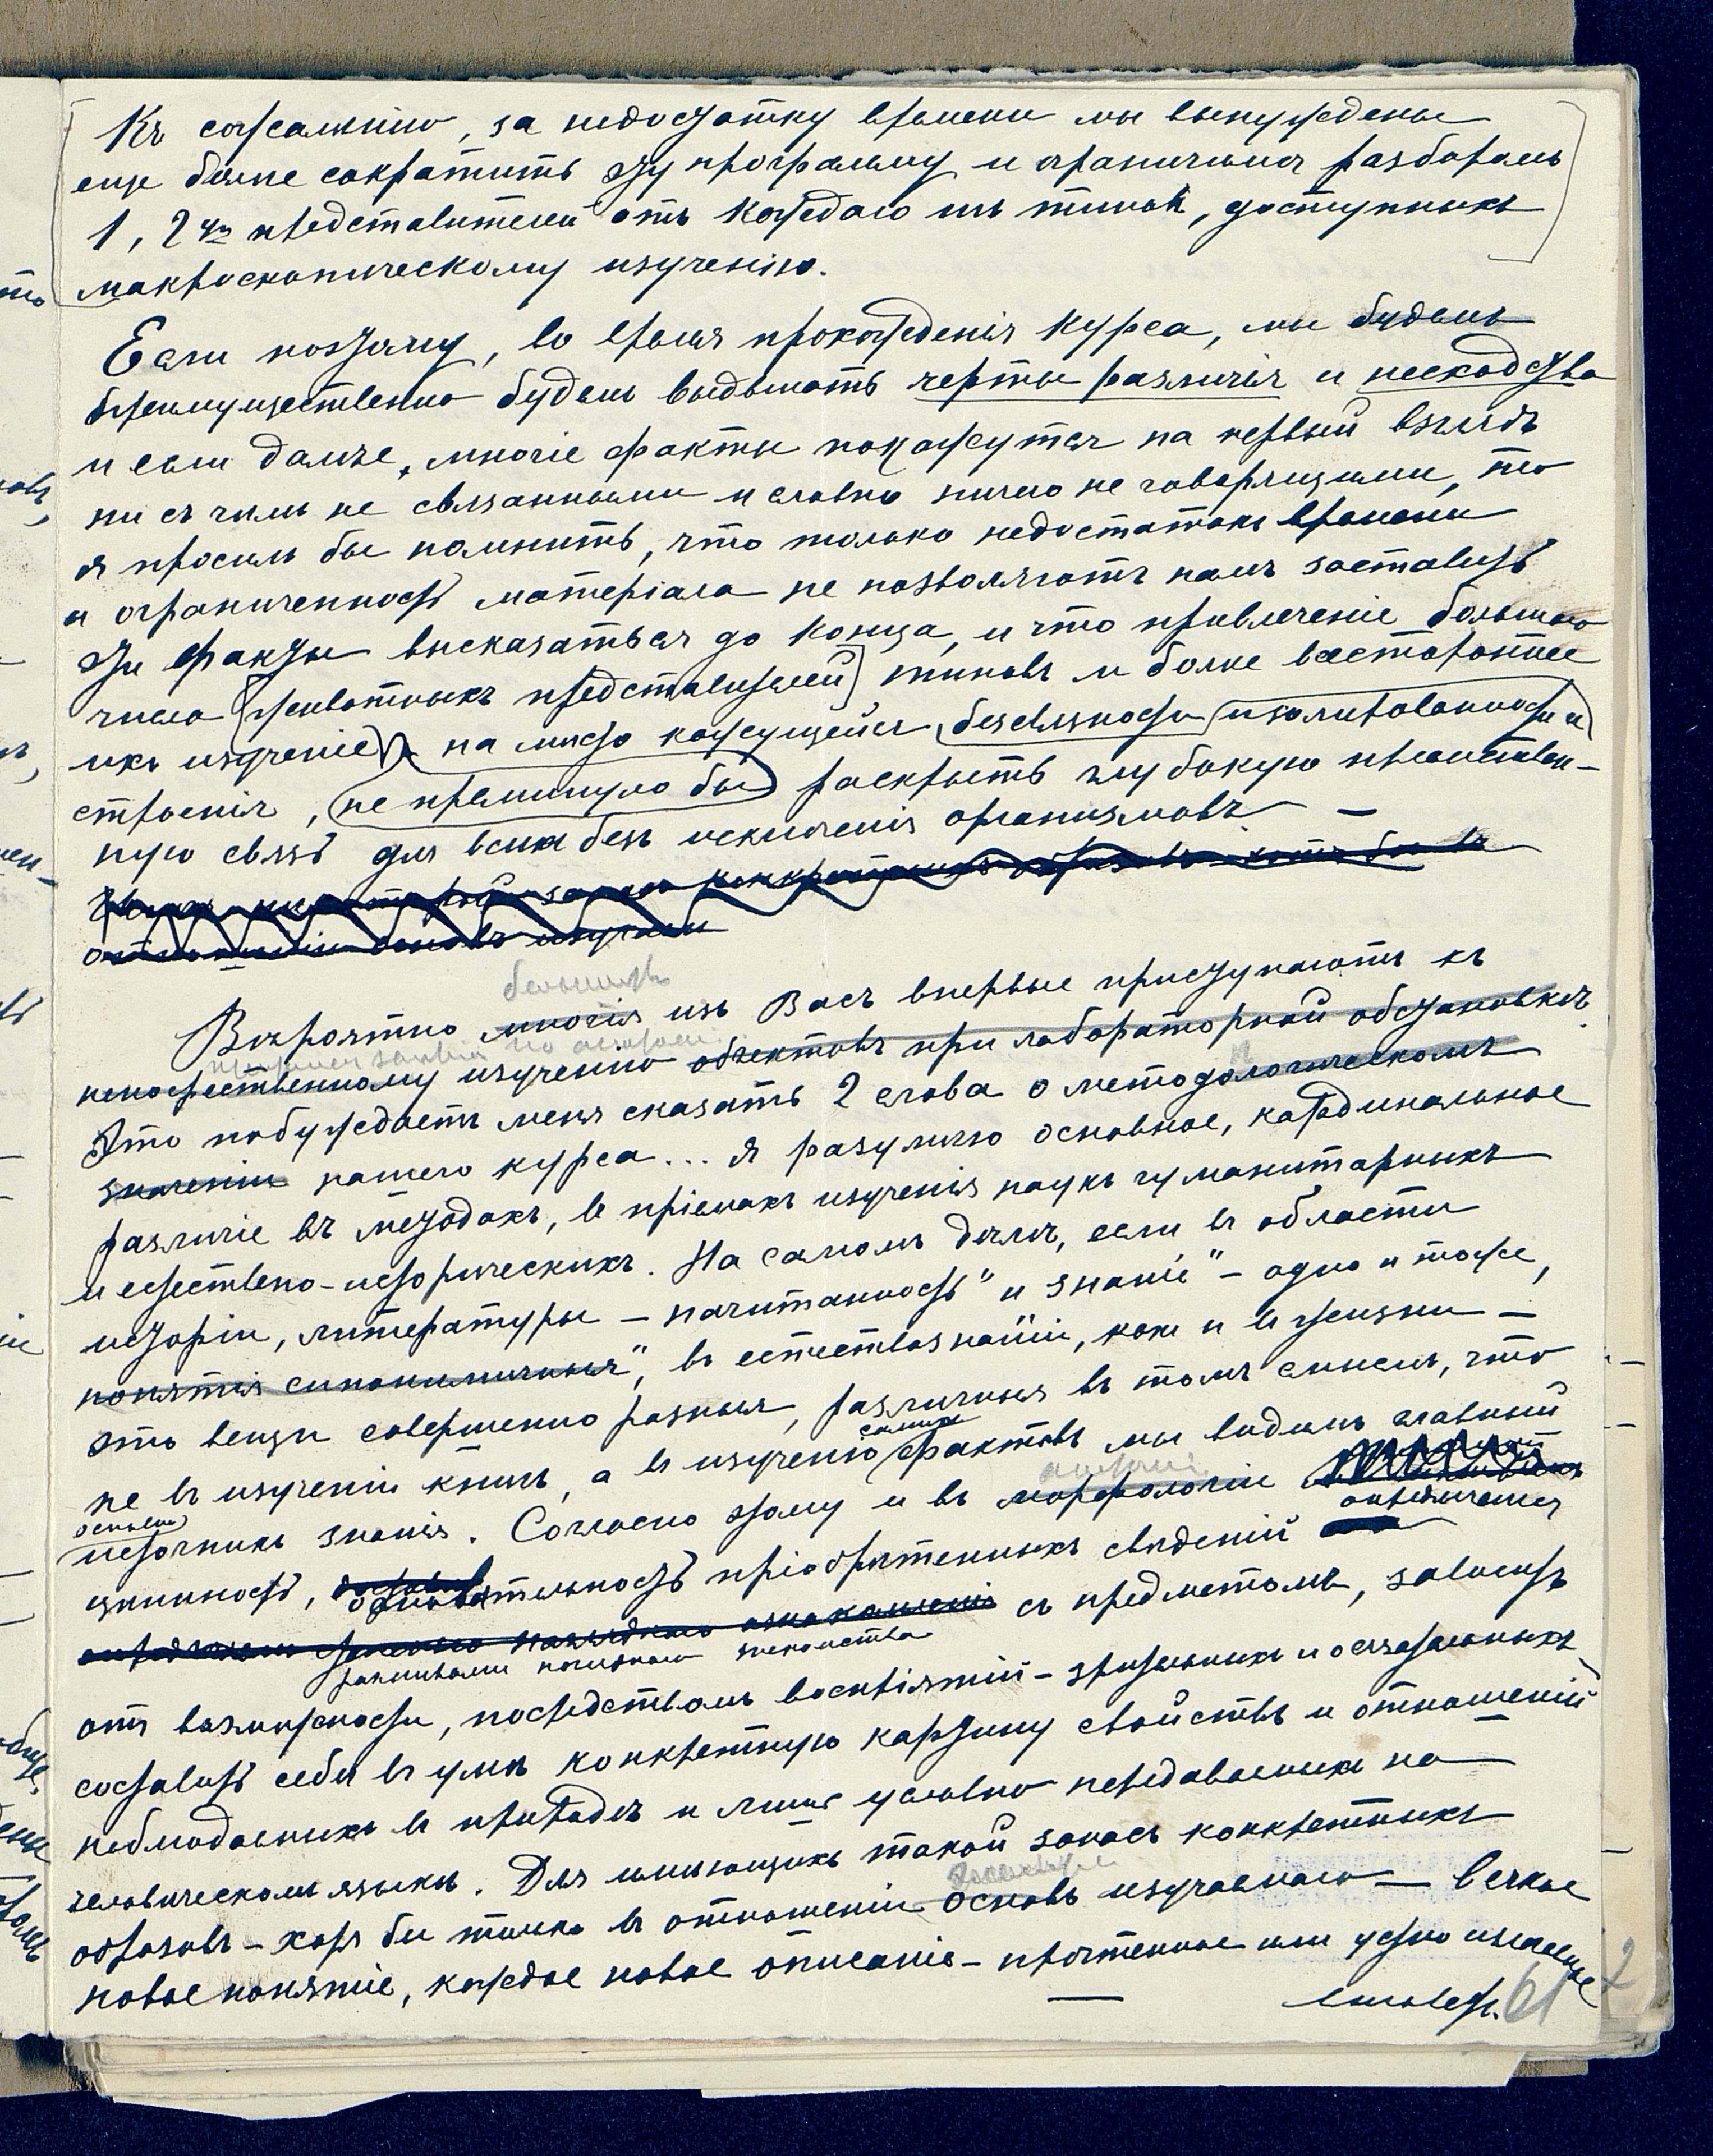 Къ сожалѣнію, за недостатку времени мы вынуждены
еще болѣе сократить эту программу и ограничимся разборомъ
1, 2хъ представителей отъ каждаго изъ типовъ, доступныхъ
макроскопическому изученію.
Если поэтому, во время прохожденія курса, мы будемъ
преимущественно будемъ выдвигать черты различія и несходства
и если далѣе, многіе факты покажутся на первый взглядъ
ни съ чѣмъ не связанными и словно ничего не говорящими, то
я просилъ бы помнить, что только недостатокъ времени
и ограниченность матеріала не позволяютъ намъ заставить
эти факты высказаться до конца, и что привлеченіе большаго
числа [животныхъ представителей] типовъ и болѣе всестороннее
ихъ изученіе на мѣсто кажущейся безсвязности (изолированности)
строенія, не преминуло бы раскрыть глубокую преемствен-
ную связь для всѣхъ безъ исключенія организмовъ —
образовъ хотя бы въ
отношеніи основъ изучаем
Вѣроятно многія изъ Васъ впервые приступаютъ къ
непосредственному изученію объектовъ при лабораторной обстановкѣ.
Это побуждаетъ меня сказать 2 слова о методологическомъ
значеніи нашего курса... Я разумѣю основное, кардинальное
различіе въ методахъ, въ пріемахъ изученія наукъ гуманитарныхъ
и естествено-историческихъ. На самомъ дѣлѣ, если въ области
исторіи, литературы — начитанность" и знаніе" — одно и тоже,
понятія синонимичныя", въ естествознаніи, какъ и въ жизни —
это вещи совершенно разныя, различныя въ томъ смыслѣ, что
самихъ
не въ изученіи книгъ, а въ изученіи фактовъ мы видимъ главный
основной
источникъ знанія. Согласно этому и въ морфологіи
опредѣляется
цѣнность, основательность пріобрѣтенныхъ свѣденій
нагляднаго ознакомленія съ предметомъ, зависитъ
знакомства
отъ возможности, посредствомъ воспріятій — зрительныхъ и осязательныхъ
составить себѣ въ умѣ конкретную картину свойствъ и отношеній
наблюдаемыхъ въ природѣ и лишь условно передаваемыхъ на
человѣческомъ языкѣ. Для имѣющихъ такой запасъ конкретныхъ
образовъ — хотя бы только въ отношеніи основъ изучаемаго — всякое
новое понятіе, каждое новое описаніе — прочтенное или устно
61
2